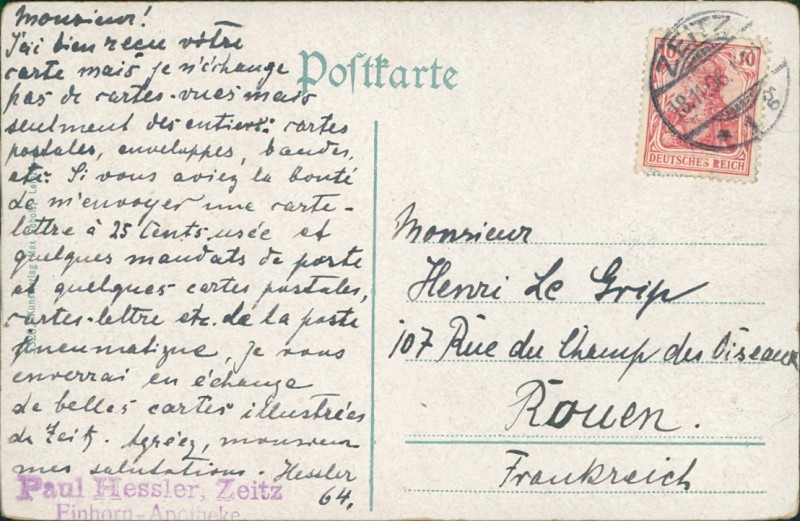 Monsieur!
J'ai bien reçu vôtre
carte mais je n'échange
pas de cartes-vues mais
seulment des entiers: cartes
postales, enveloppes, bandes,
etc. Si vous aviez la bonté
de m'envoyer une carte-
lettre à 25 Cents. usée et
quelques mandats de poste
et quelques cartes postales,
cartes-lettre etc. de la poste
pneumatique, je vous
enverrai en échange
de belles cartes illustrées
de Zeitz. Agréez, monsieur
mes salutations. Hessler
64.
Paul Hessler, Zeitz
Einhorn-Apotheke
Postkarte
ZEITZ
10
DEUTSCHES REICH
Monsieur
Henri Le Grip
107 Rue du Champ des Oiseaux
Rouen.
Frankreich